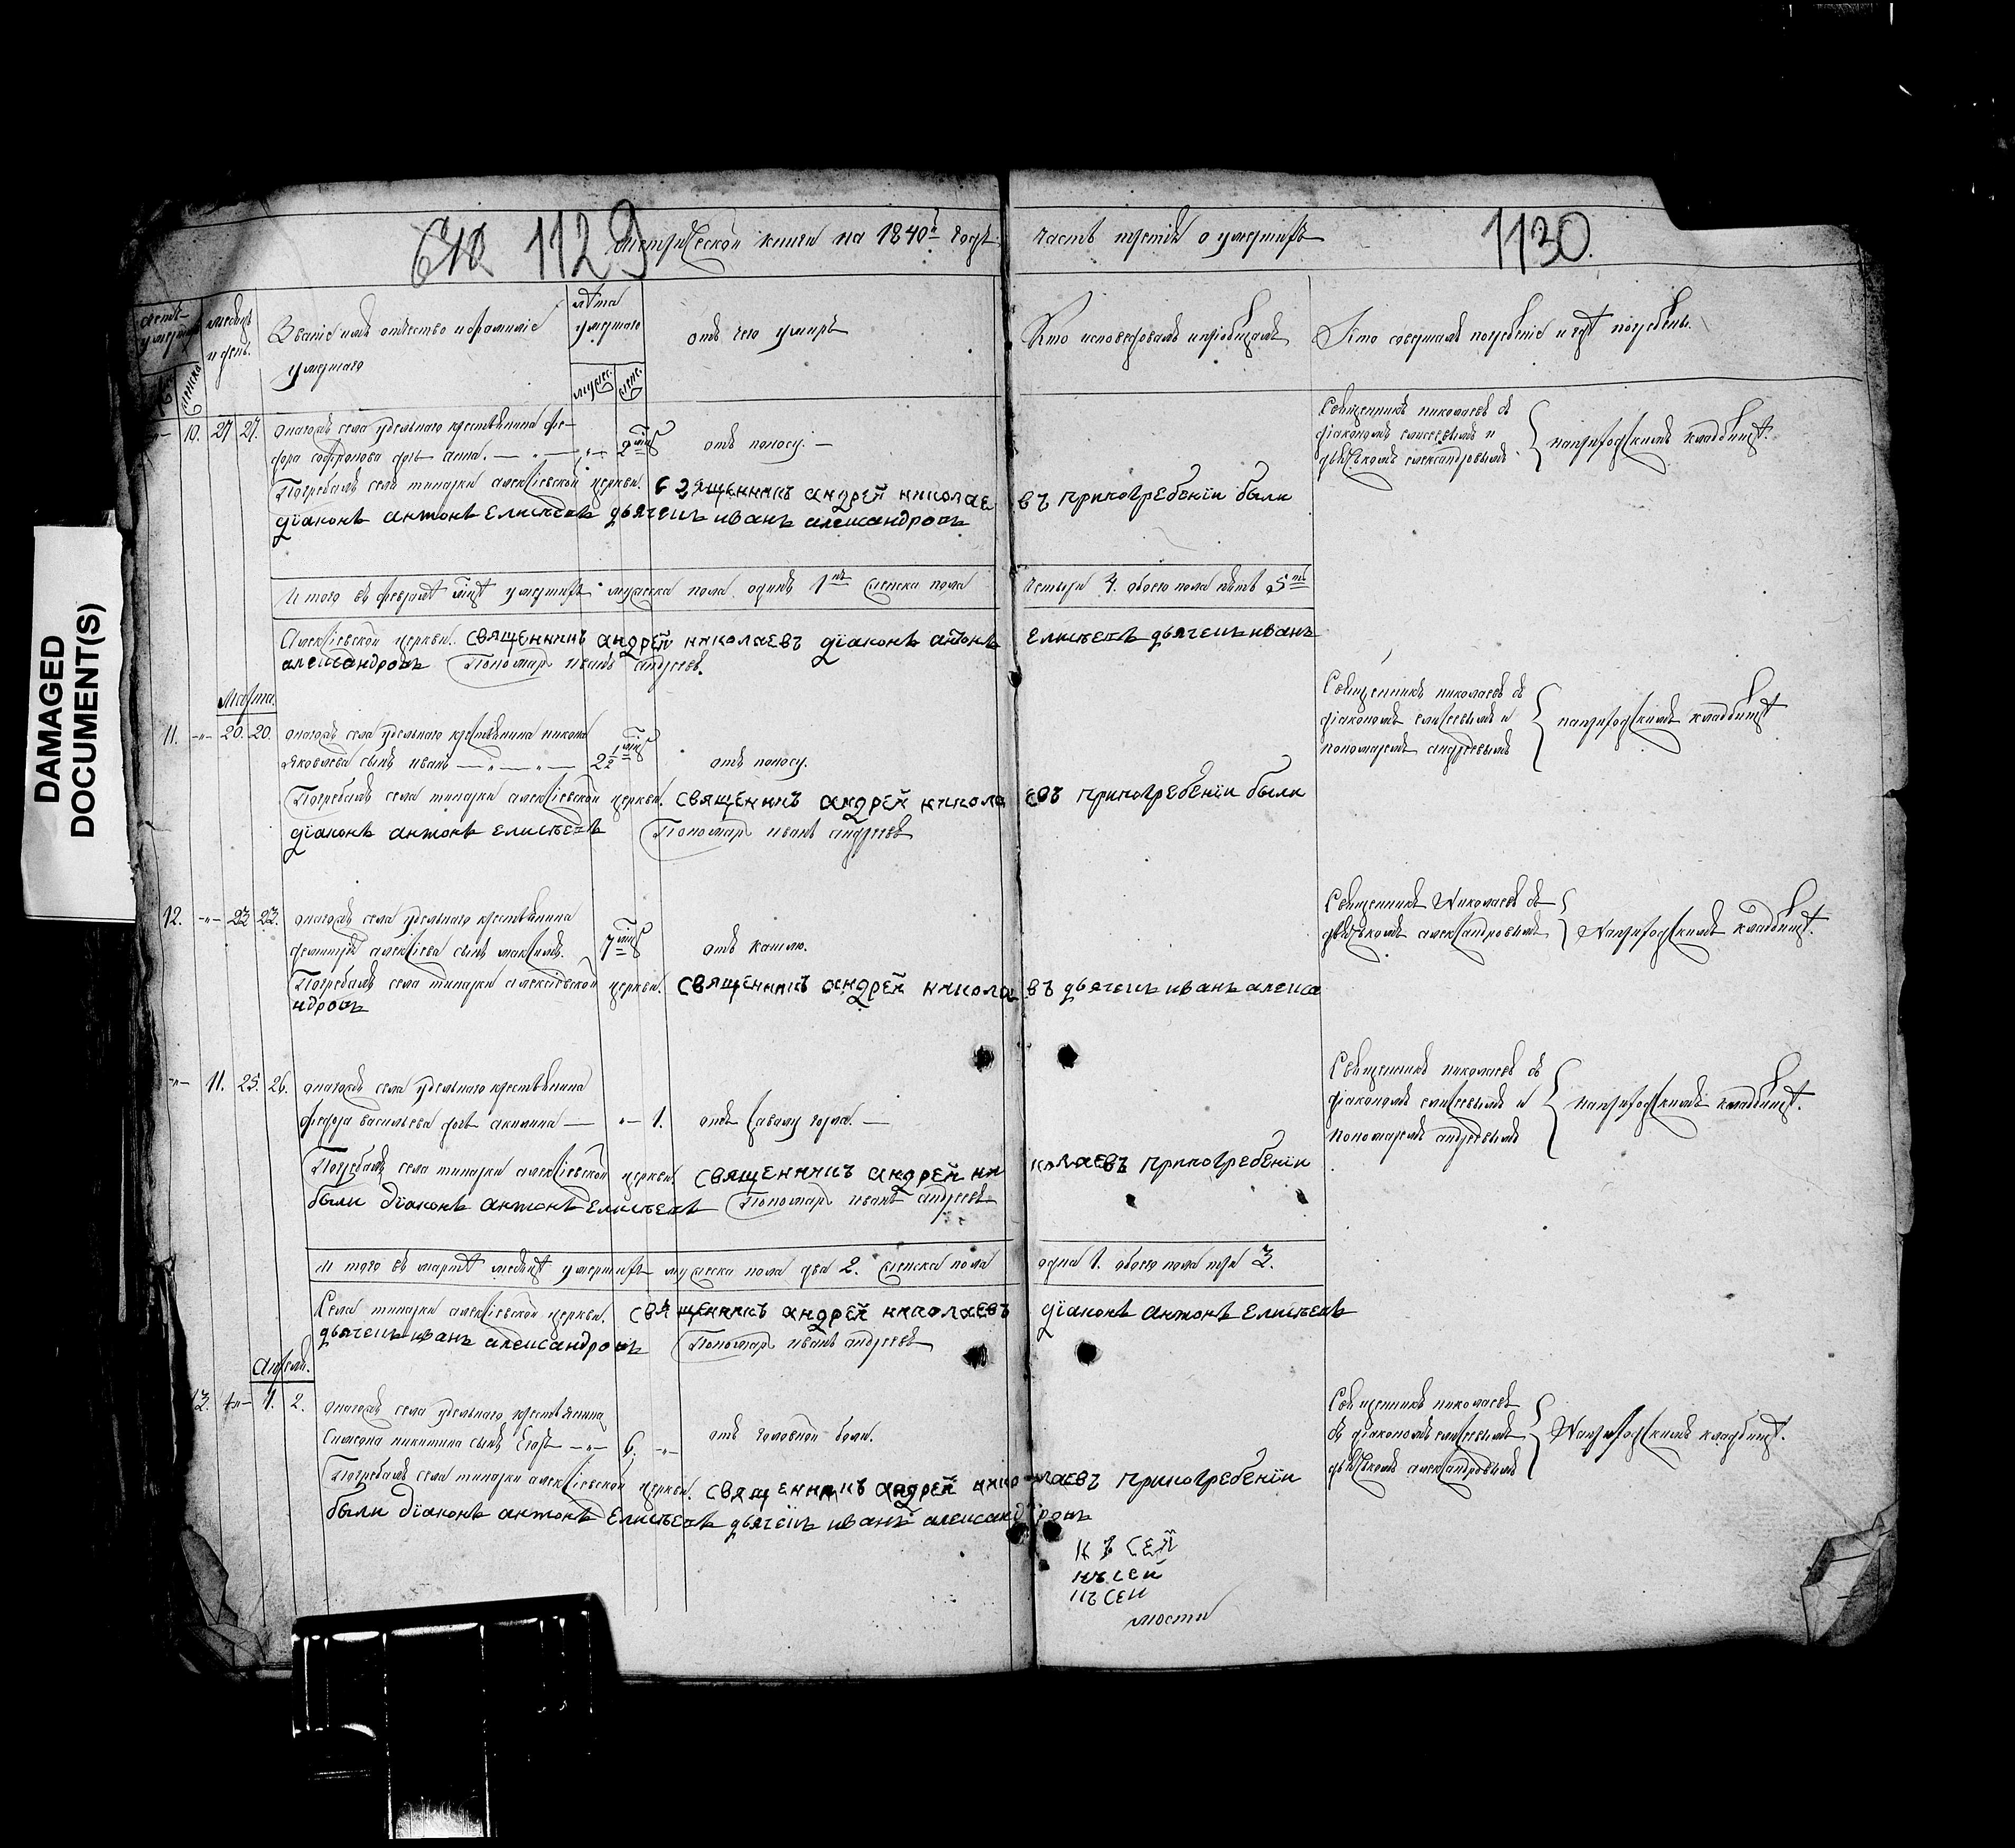 DAMAGED
DOCUMENT(S)
1129 метрической книги на 1840й годъ часть третія о умершихъ 1130.
месяцъ и день.
Званіе имя отчество и фамиліе умершаго
лѣта умершаго
отъ чего умиръ
Кто исповедовалъ и приобщалъ
Кто совершалъ погребеніе и где погребенъ.
10. 27 27. онагожъ села удельнаго крестьянина фе-
дора софронова дочь анна. 2 отъ поносу.
Священникъ николаевъ съ
діакономъ елисеевымъ и
дьячкомъ александровымъ. наприходскимъ кладбище.
Погребалъ села алексіевской церкви. священникъ андрей николаевъ припогребеніи были
діаконъ антонъ елисѣевъ дьячекъ иванъ александровъ
Итого въ феврале умершихъ мужеска пола одинъ 1нъ женска пола четыри 4. обоего пола пять 5ть
Алексіевской церкви. священникъ андрей николаевъ діаконъ антонъ елисѣевъ дьячекъ иванъ
александровъ Пономарь иванъ андреевъ.
Марта.
11. 20. 20. онагожъ села удельнаго крестьянина никона
яковлева сынъ иванъ 2 1/2 отъ поносу.
Священникъ николаевъ съ
діакономъ елисеевымъ и
пономаремъ андреевымъ наприходскимъ кладбище
Погребалъ села алексіевской церкви. священникъ андрей николаевъ припогребеніи были
діаконъ антонъ елисѣевъ Пономарь иванъ андреевъ
12. 23 23. онагожъ села удельнаго крестьянина
демитрія алексіева сынъ максимъ. 7 отъ кашлю.
Священникъ Николаевъ съ
дьячькомъ александровымъ Наприходскимъ кладбище.
Погребалъ села алексіевской церкви. священникъ андрей никола въ дьячекъ иванъ алекса
ндровъ
11. 25. 26. онагожъ села удельнаго крестьянина
федора васильева дочь акилина 1. отъ горла.
Священникъ николаевъ съ
діакономъ елисеевымъ и
пономаремъ андреевымъ наприходскимъ кладбище.
Погребалъ села алексіевской церкви. священникъ андрей николаевъ припогребеніи
были діаконъ антонъ елисѣевъ Пономарь иванъ андреевъ
Итого въ марте месяце умершихъ мужеска пола два 2. женска пола одна 1. обоего пола три 3.
Села алексіевской церкви. священникъ андрей николаевъ діаконъ антонъ елисѣевъ
дьячекъ иванъ александровъ Пономарь иванъ андреевъ
апреля.
13. 1. 2. онагожъ села удельнаго крестьянина
Симеона никитина сынъ 6. отъ головной боли.
Священникъ николаевъ
съ діакономъ елисеевымъ
дьячькомъ александровымъ Наприходскимъ кладбище.
Погребалъ села алексіевской церкви. священникъ андрей николаевъ припогребеніи
были діаконъ антонъ елисѣевъ дьячекъ иванъ александровъ
къ сей
къ сей
къ сей